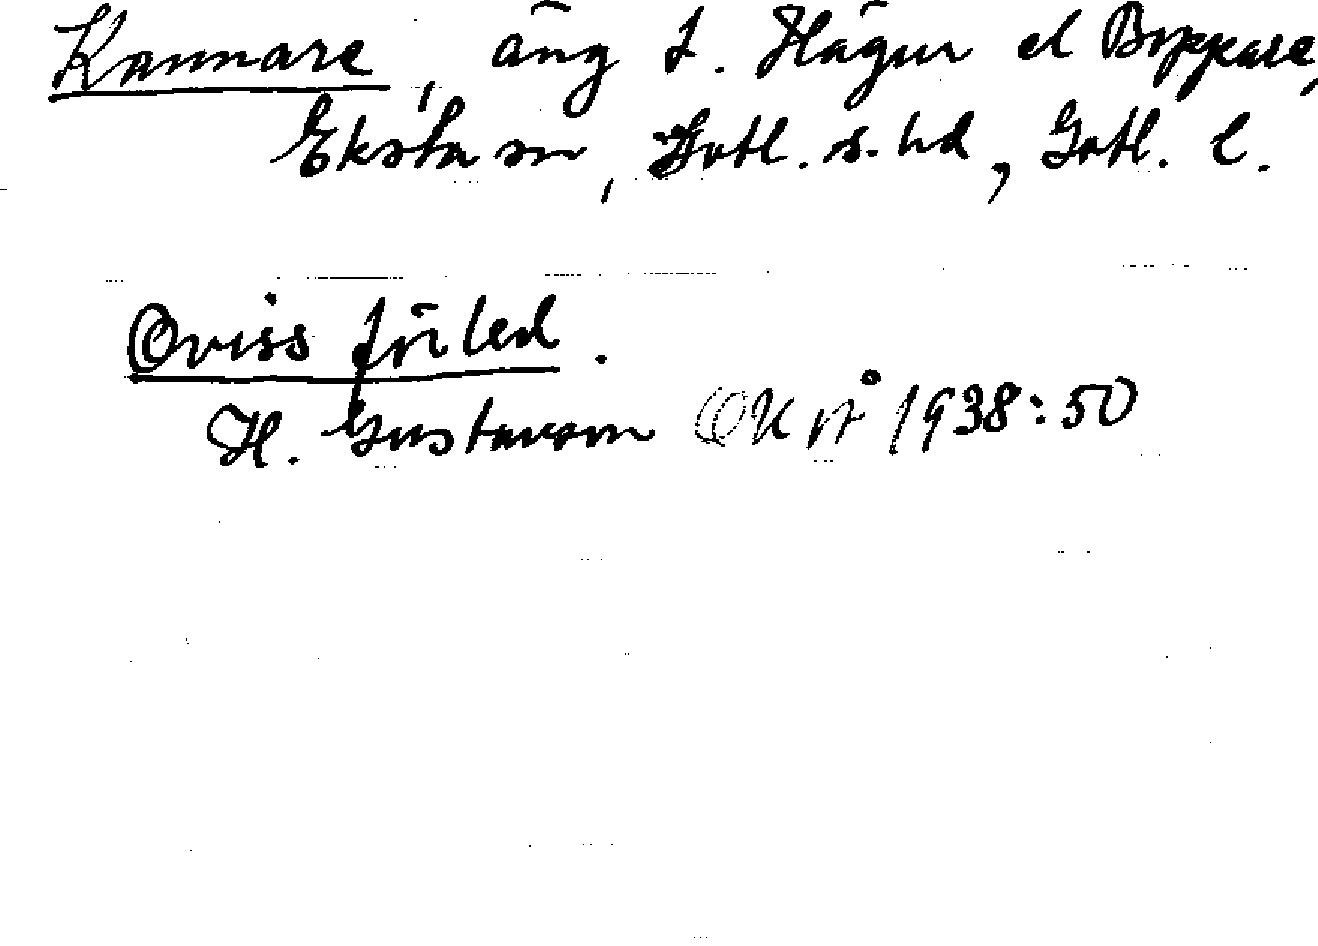 Kannare, äng t. Hägur el Boppare,
Eksta sn, Gotl. s. hd, Gotl. l.
Oviss förled.
H. Gustavson OKå 1938:50